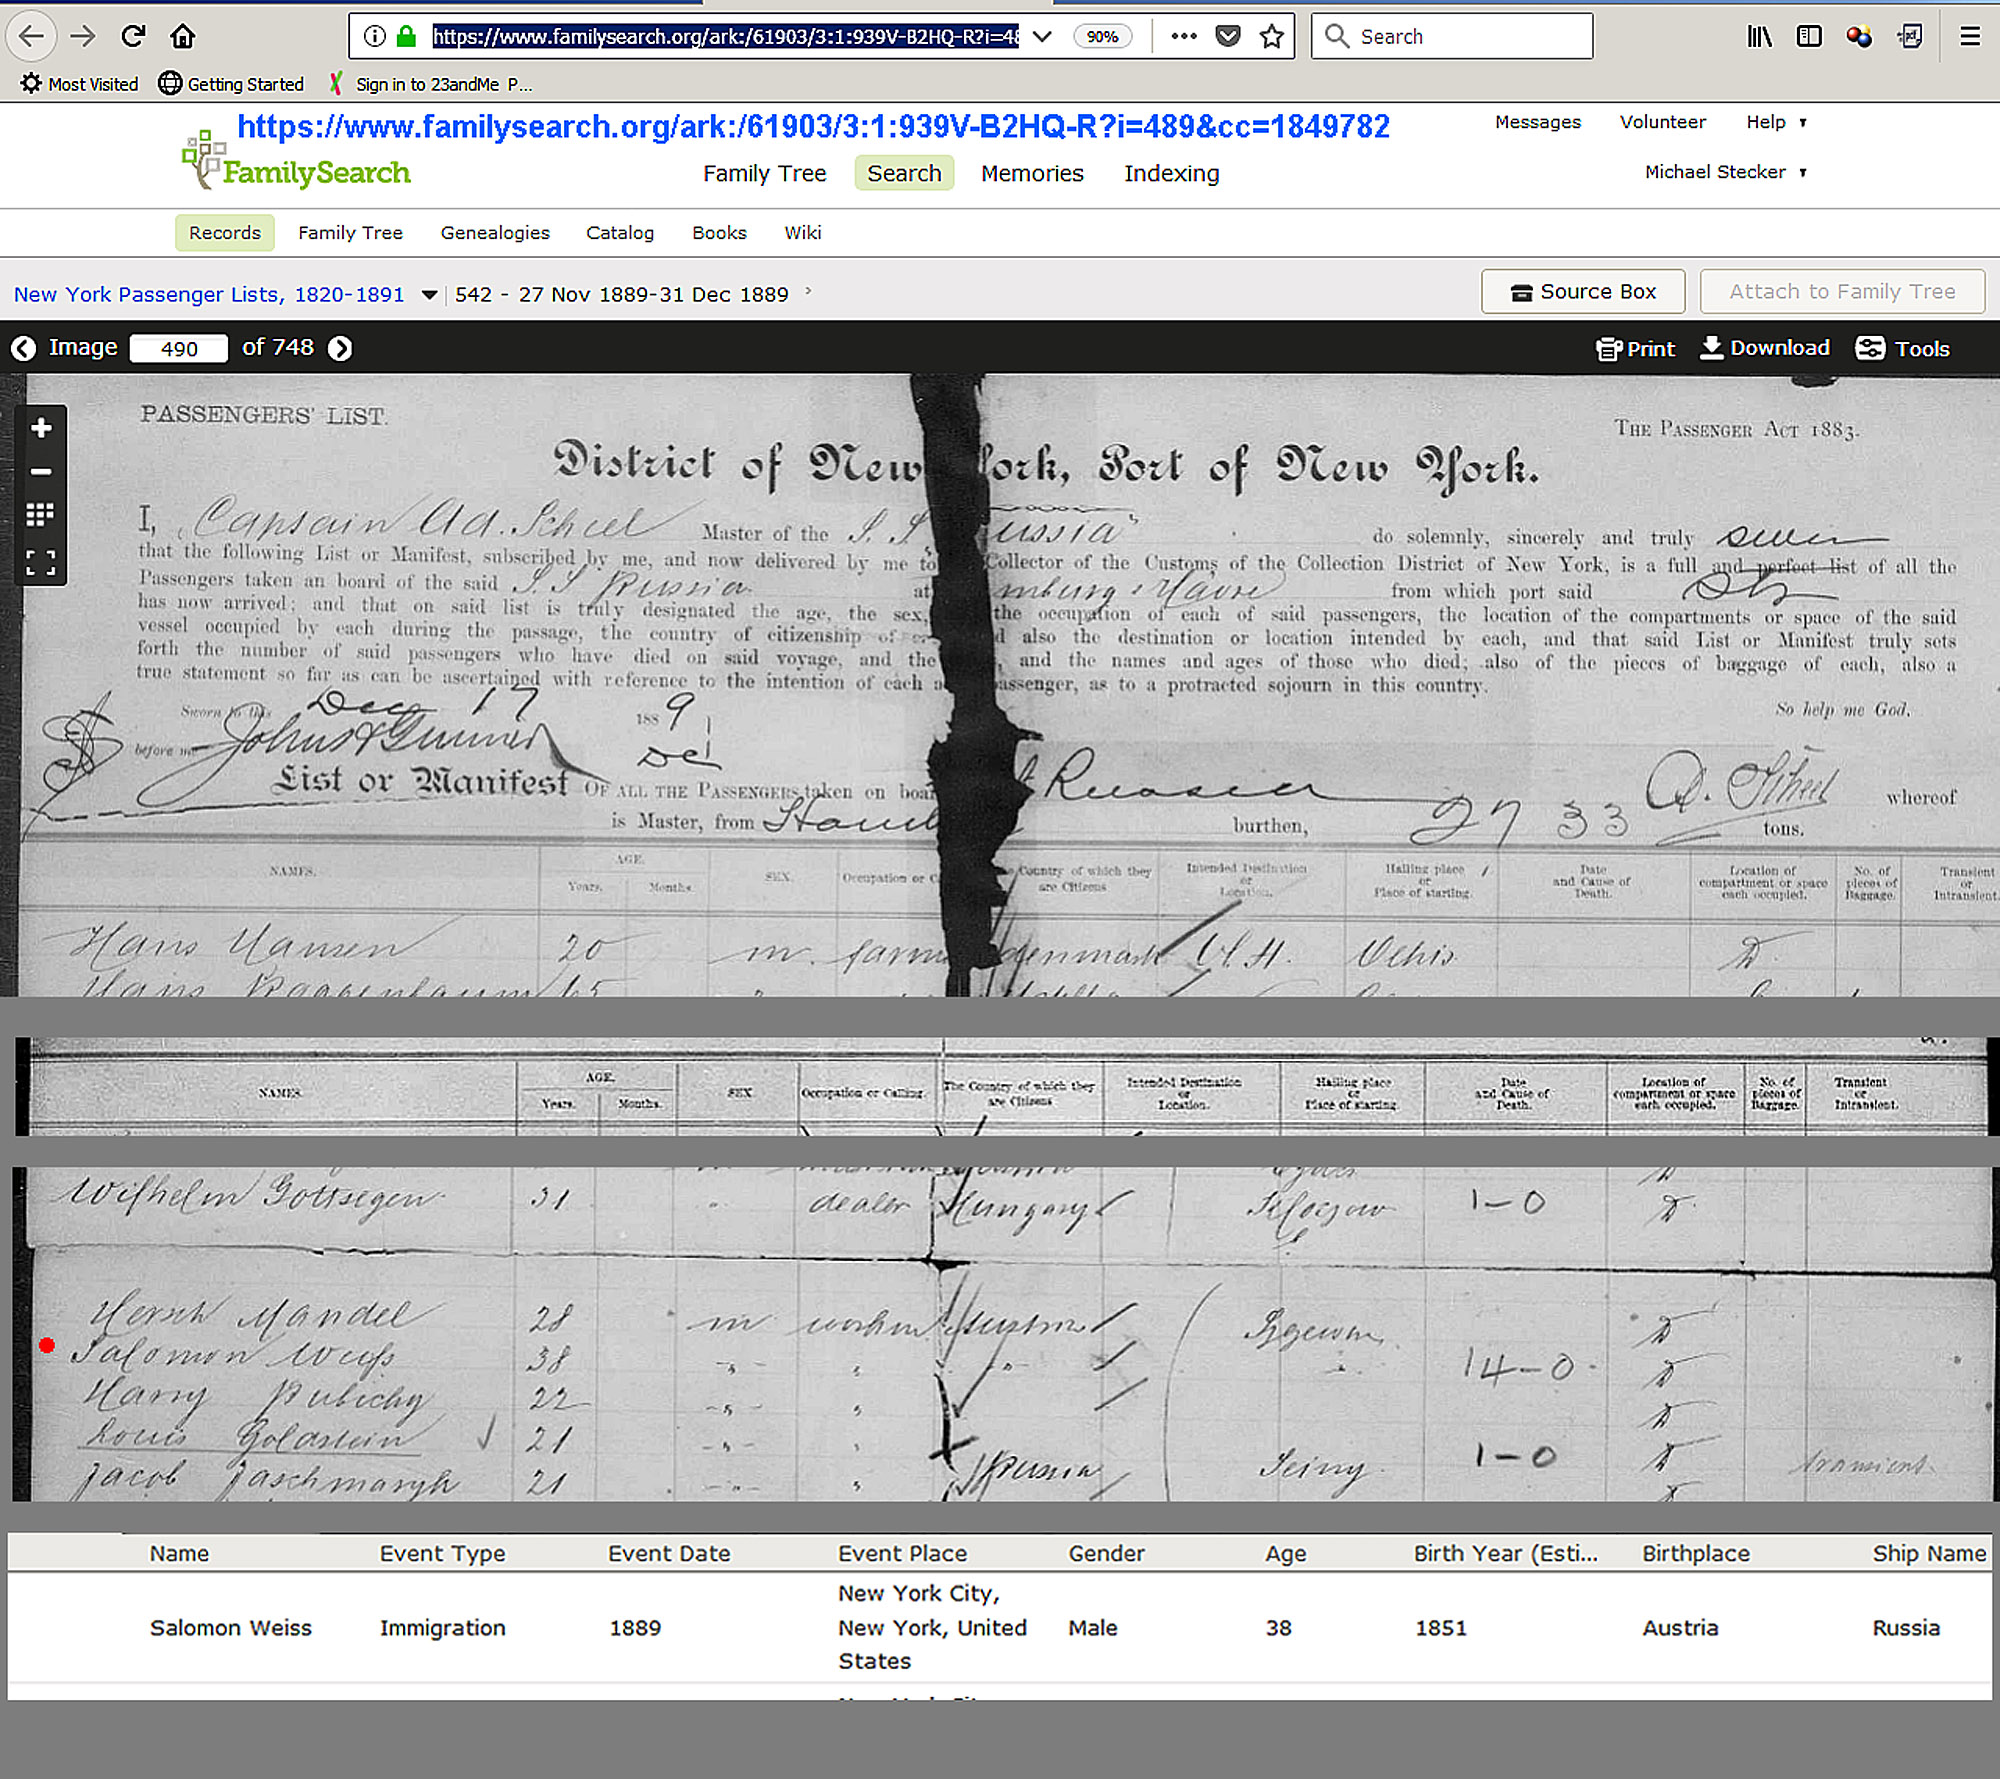 https://www.familysearch.org/ark:/61903/3:1:939V-B2HQ-R?i=48
90%
Search
Most Visited
Getting Started
Sign in to 23andMe P...
https://www.familysearch.org/ark:/61903/3:1:939V-B2HQ-R?i=489&cc=1849782
Messages Volunteer Help
FamilySearch
Family Tree Search Memories Indexing
Michael Stecker
Records Family Tree Genealogies Catalog Books Wiki
New York Passenger Lists, 1820-1891
542 - 27 Nov 1889-31 Dec 1889 ›
Source Box
Attach to Family Tree
Image 490 of 748
Print Download Tools
PASSENGERS' LIST.
THE PASSENGER ACT 1883.
District of New York, Port of New York.
I, Captain Ad. Scheel Master of the S. S. "Russia" do solemnly, sincerely and truly swear
that the following List or Manifest, subscribed by me, and now delivered by me to Collector of the Customs of the Collection District of New York, is a full and perfect list of all the
Passengers taken an board of the said S. S Russia at mburg Havre from which port said
has now arrived; and that on said list is truly designated the age, the sex, the occupation of each of said passengers, the location of the compartments or space of the said
vessel occupied by each during the passage, the country of citizenship of also the destination or location intended by each, and that said List or Manifest truly sets
forth the number of said passengers who have died on said voyage, and the , and the names and ages of those who died; also of the pieces of baggage of each, also a
true statement so far as can be ascertained with reference to the intention of each assenger, as to a protracted sojourn in this country.
Sworn to this Dec 17 1889
So help me God.
before me
List or Manifest OF ALL THE PASSENGERS taken on boa Russia A. Scheel whereof
is Master, from Hamb burthen, 2733 tons.
NAMES. AGE. Years. Months. SEX. Occupation or C Country of which they are Citizens Intended Destination or Location. Hailing place or Place of starting. Date and Cause of Death. Location of compartment or space each occupied. No. of pieces of Baggage. Transient or Intransient.
Hans Hansen 20 m. farm denmark
Hans
NAMES. AGE. Years. Months. SEX. Occupation or Calling. The Country of which they are Citizens Intended Destination or Location. Hailing place or Place of starting. Date and Cause of Death. Location of compartment or space each occupied. No. of pieces of Baggage. Transient or Intransient.
Wilhelm Gottsegen 31 " dealer Hungary 1-0
Hersch Mandel 28 m workm Austria
Salomon Weiss 38 " " " " 14-0
Harry 22 " "
Louis Goldstein 21 " " 1-0
Jacob 21 " " Russia transient
Name Event Type Event Date Event Place Gender Age Birth Year (Esti... Birthplace Ship Name
Salomon Weiss Immigration 1889 New York City, New York, United States Male 38 1851 Austria Russia